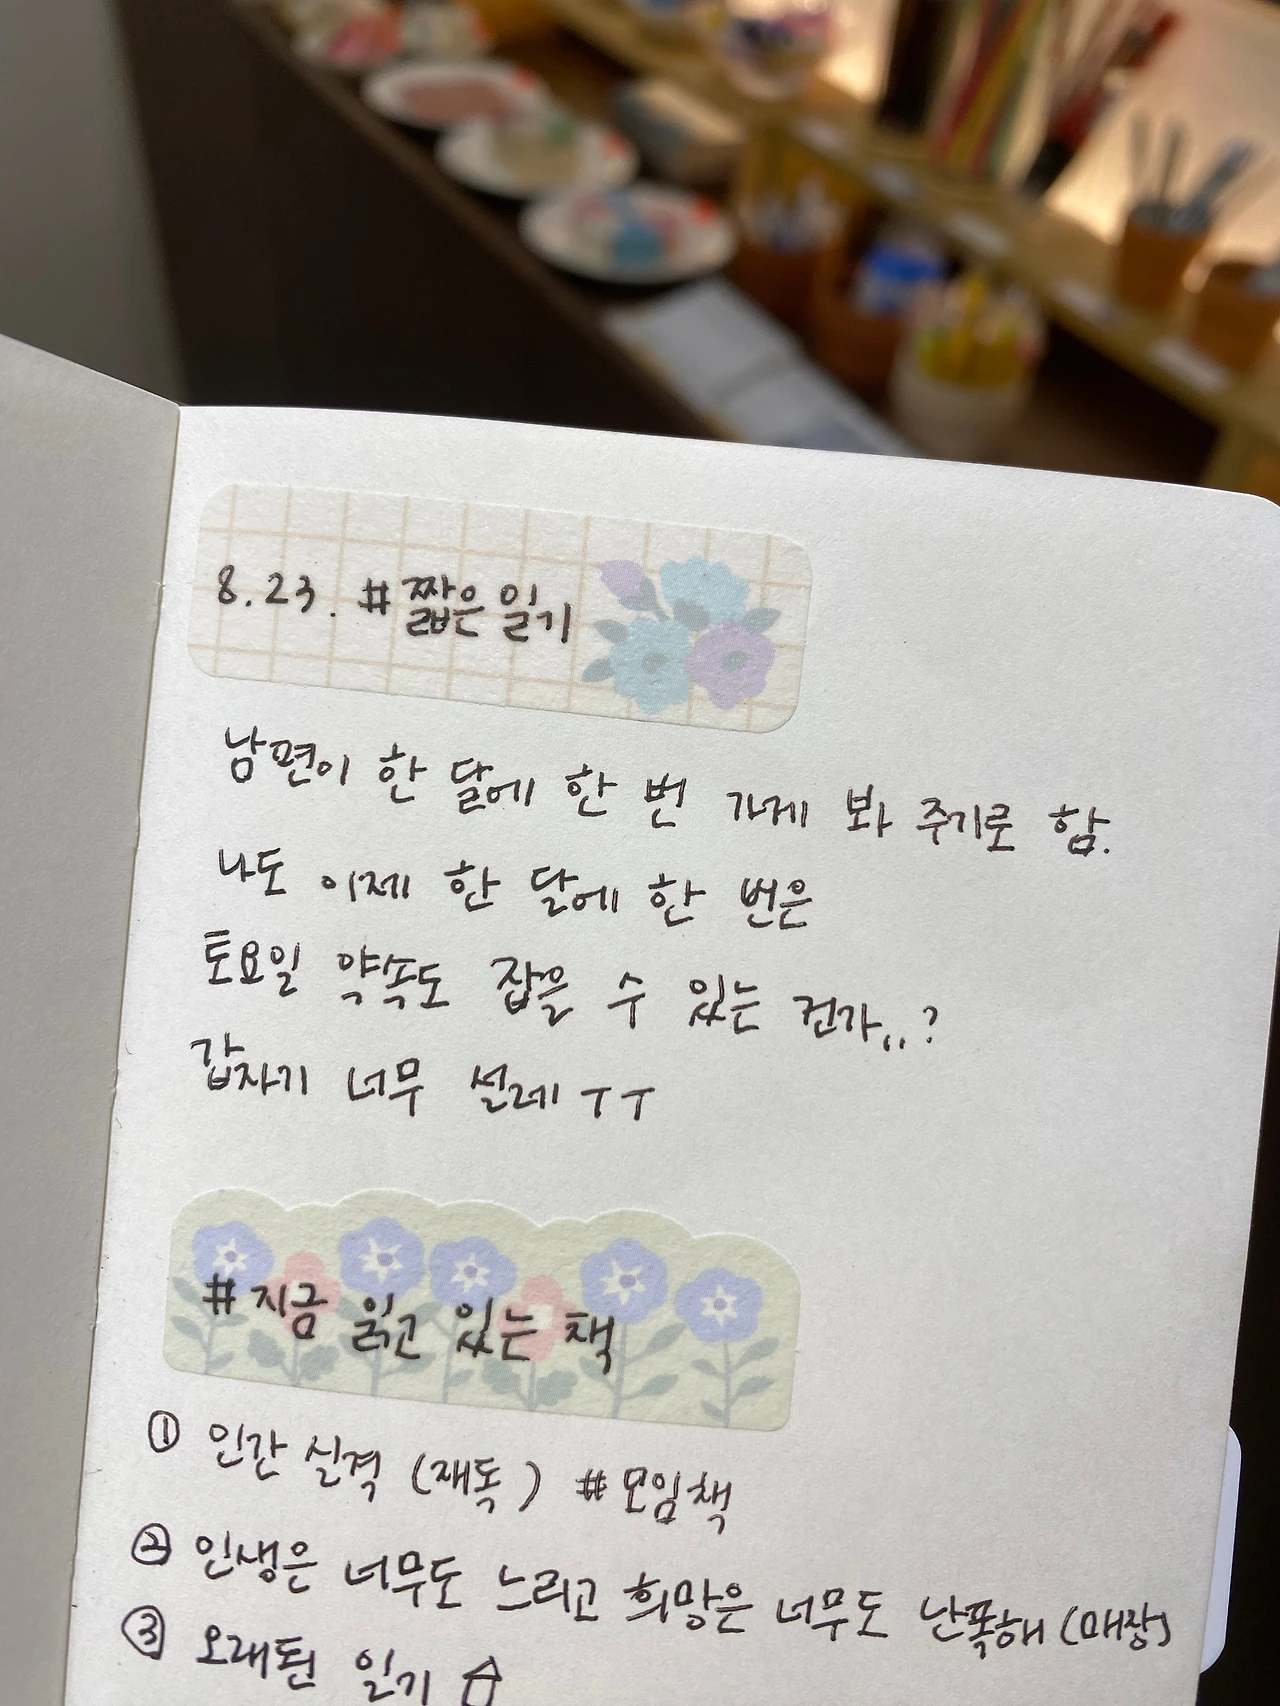 8.23. #짧은 일기
남편이 한 달에 한 번 가게 봐 주기로 함.
나도 이제 한 달에 한 번은
토요일 약속도 잡을 수 있는 건가..?
갑자기 너무 설레 ㅜㅜ
#지금 읽고 있는 책
① 인간 실격 (재독) #모임책
② 인생은 너무도 느리고 희망은 너무도 난폭해 (매장)
③ 오래된 일기